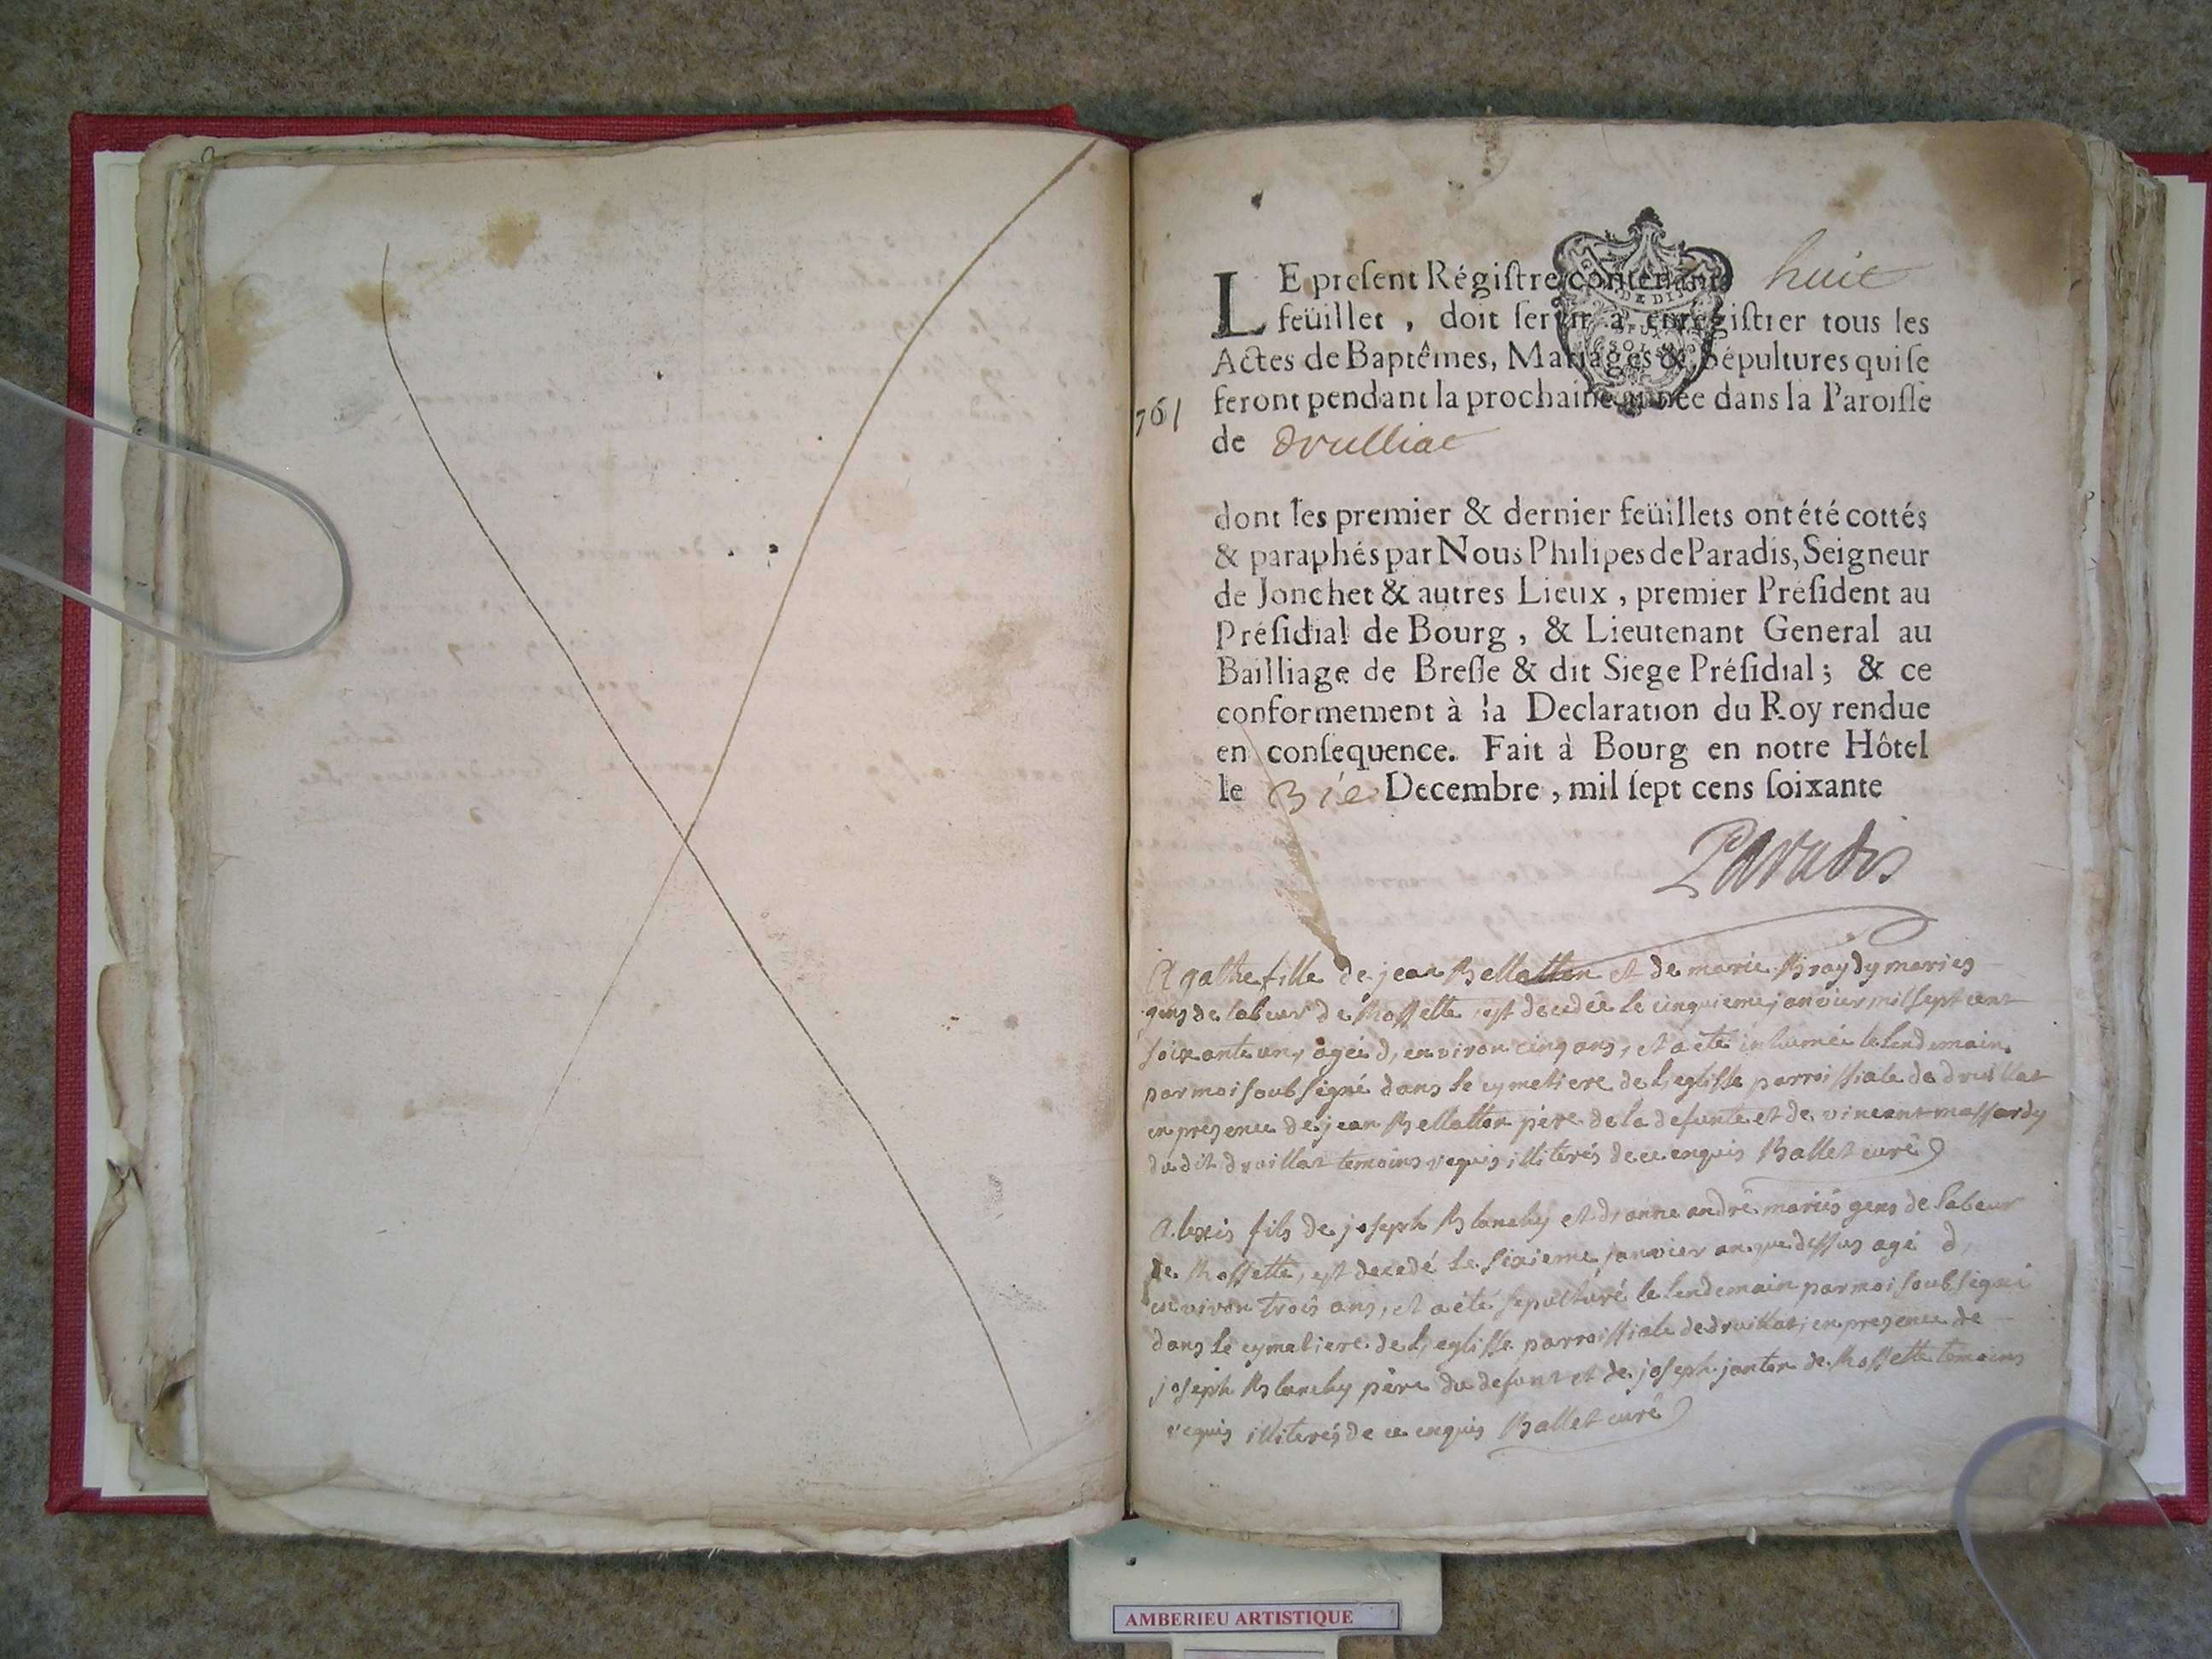 LE present Régistre contenant huit
feüillet , doit servir à enrégistrer tous les
Actes de Baptêmes, Mariages & Sépultures qui se
feront pendant la prochaine année dans la Paroisse
761
de drulliat
dont les premier & dernier feüillets ont été cottés
& paraphés par Nous Philipes de Paradis, Seigneur
de Jonchet & autres Lieux , premier Président au
Présidial de Bourg , & Lieutenant General au
Bailliage de Bresse & dit Siege Présidial ; & ce
conformement à la Declaration du Roy rendue
en consequence. Fait à Bourg en notre Hôtel
le Decembre , mil sept cens soixante
Paradis
Agathe fille de jean Bellatton et de marie mariés
gens de labeur de Rossette, est decedée le cinquieme janvier mil sept cent
soixante un, agée d, environ cinq ans, et a eté inhumée le lendemain
par moi soubsigné dans le cymetiere de l, eglisse parroissiale de druillat
en presence de jean Bellatton père de la defunte et de vincent massardy
du dit druillat temoins requis illiterés de ce enquis Ballet curé
Alexis fils de joseph Blanchy et d, anne andré mariés gens de labeur
de Rossette, est decedé le sixieme janvier an que dessus agé d,
environ trois ans, et a été sepulturé le lendemain par moi soubsigné
dans le cymetiere de l, eglisse parroissiale de druillat, en presence de
joseph Blanchy père du defunt et de joseph janton de Rossette temoins
requis illiterés de ce enquis Ballet curé
AMBERIEU ARTISTIQUE